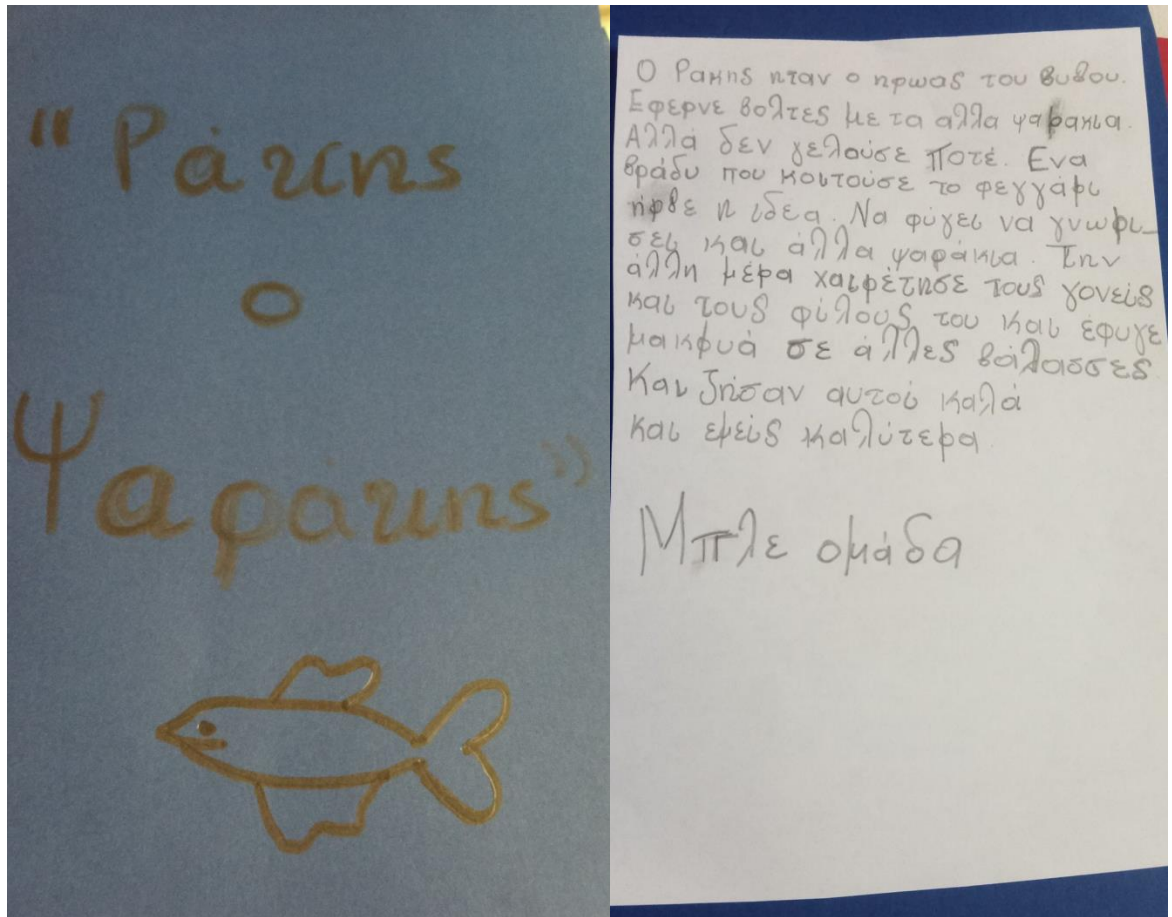 "Ράκης
ο
Ψαράκης"
Ο Ρακης ηταν ο ηρωας του βυθου.
Εφερνε βολτες με τα αλλα ψαρακια.
Αλλά δεν γελούσε ποτέ. Ενα
βράδυ που κοιτούσε το φεγγάρι
ήρθε η ιδέα. Να φύγει να γνωρι_
σει και άλλα ψαράκια. Την
άλλη μέρα χαιρέτησε τους γονείς
και τους φίλους του και έφυγε
μακρυά σε άλλες θάλασσες
Και ζήσαν αυτοί καλά
και εμείς καλύτερα
Μπλε ομάδα